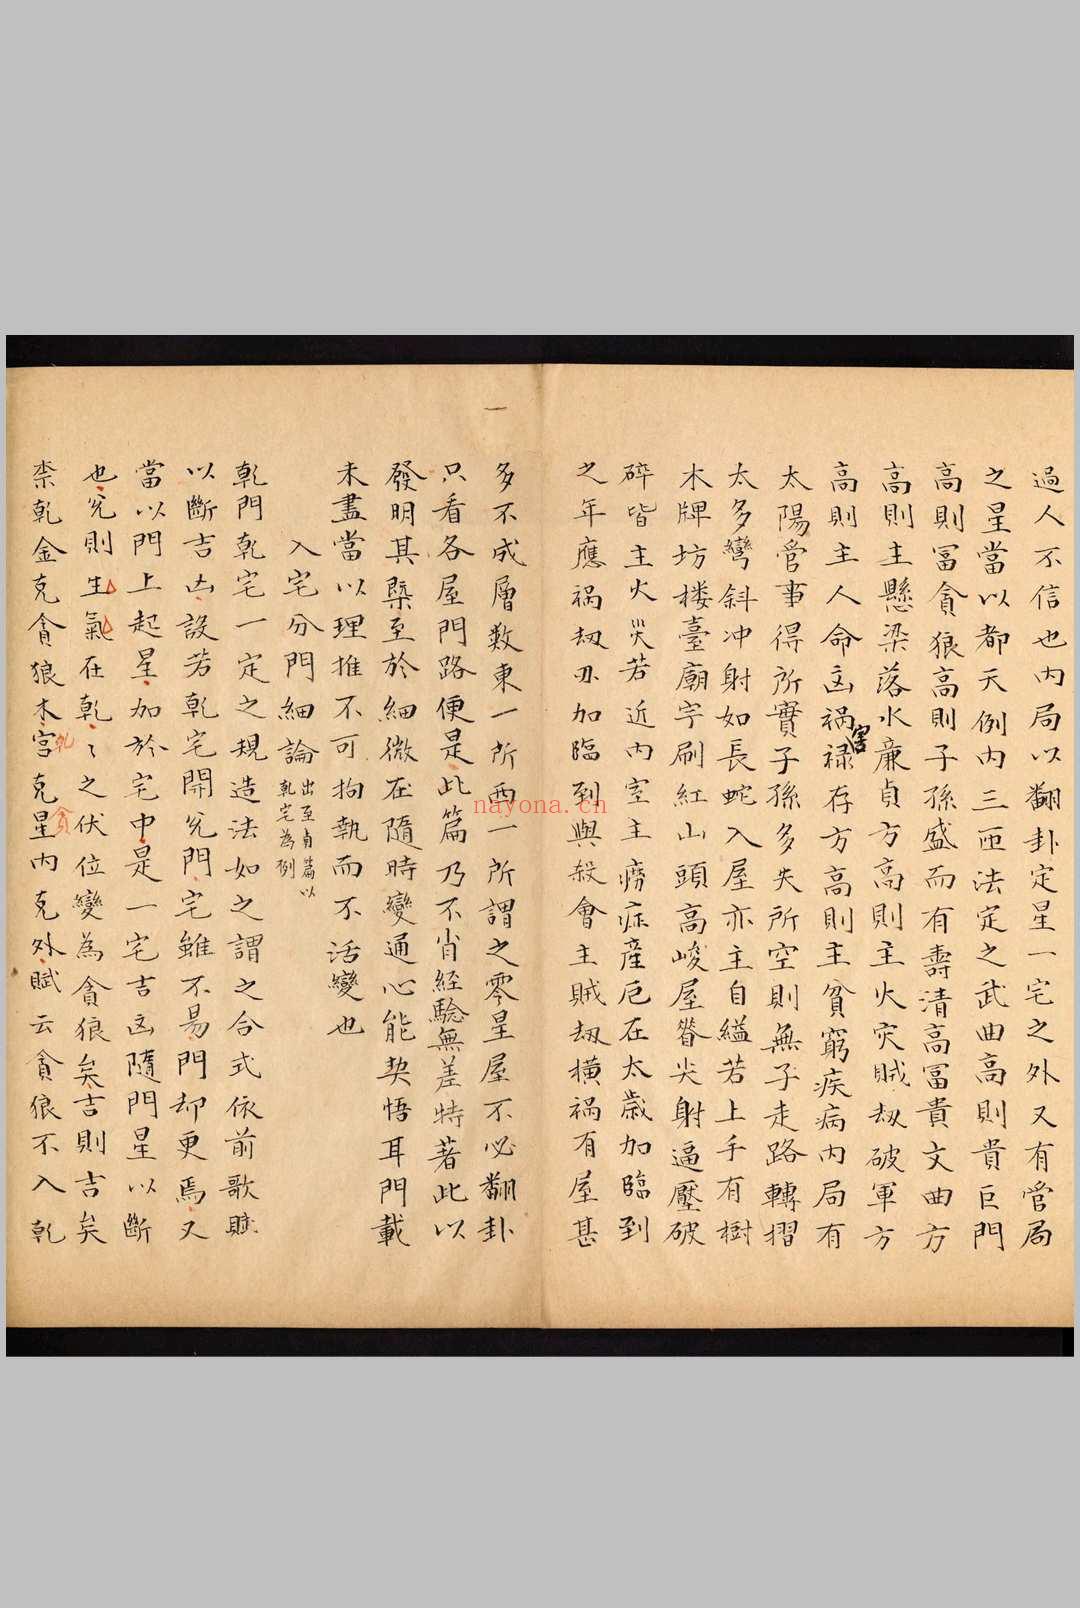 過人不信也內局以翻卦定星一宅之外又有管局
之星當以都天例內三匝法定之武曲高則貴巨門
高則冨貪狼高則子孫盛而有壽清高冨貴文曲方
高則主懸梁落水廉貞方高則主火灾賊刼破軍方
高則主人命凶禍害祿存方高則主貧窮疾病內局有
太陽管事得所實子孫多失所空則無子走路轉摺
太多彎斜冲射如長蛇入屋亦主自縊若上手有樹
木牌坊楼臺廟宇刷紅山頭高峻屋脊尖射逼壓破
碎皆主火災若近內室主癆症産厄在太歲加臨到
之年應禍刼刃加臨到與殺會主賊刼橫禍有屋甚
一
多不成層数東一所西一所謂之零星屋不必翻卦
只看各屋門路便是此篇乃不肖経驗無差特著此以
發明其槩至於細微在隨時變通心能契悟耳門載
未盡當以理推不可拘執而不活變也
入宅分門細論
出至貞篇以
乾宅為例
乾門乾宅一定之規造法如之謂之合式依前歌賦
以斷吉凶設若乾宅開兊門宅雖不易門却更焉又
當以門上起星加於宅中是一宅吉凶隨門星以斷
也兊則生氣在乾々之伏位變為貪狼矣吉則吉矣
柰乾金克貪狼木宮克星內克外賦云貪狼不入乾
乾
貪
nayona.cn